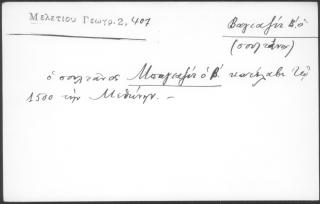 Μελετίου Γεωγρ. 2, 407
Βαγιαζὶτ Β! ὁ
(σουλτάνο)
ὁ σουλτᾶνος Μπαγιαζὶτ ὁ Β! κατέλαβε τῷ
1500 τὴν Μεθώνην. —